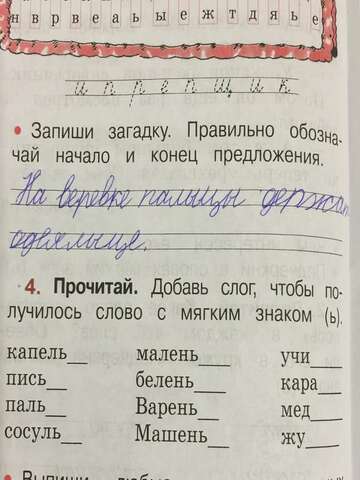 н в р в е а ь ы е ж т д я ь е
и п р е п щ и к
• Запиши загадку. Правильно обозна-
чай начало и конец предложения.
На веревке пальцы держат
одеяльце.
4. Прочитай. Добавь слог, чтобы по-
лучилось слово с мягким знаком (ь).
капель__ малень__ учи__
пись__ белень__ кара__
паль__ Варень__ мед__
сосуль__ Машень__ жу__